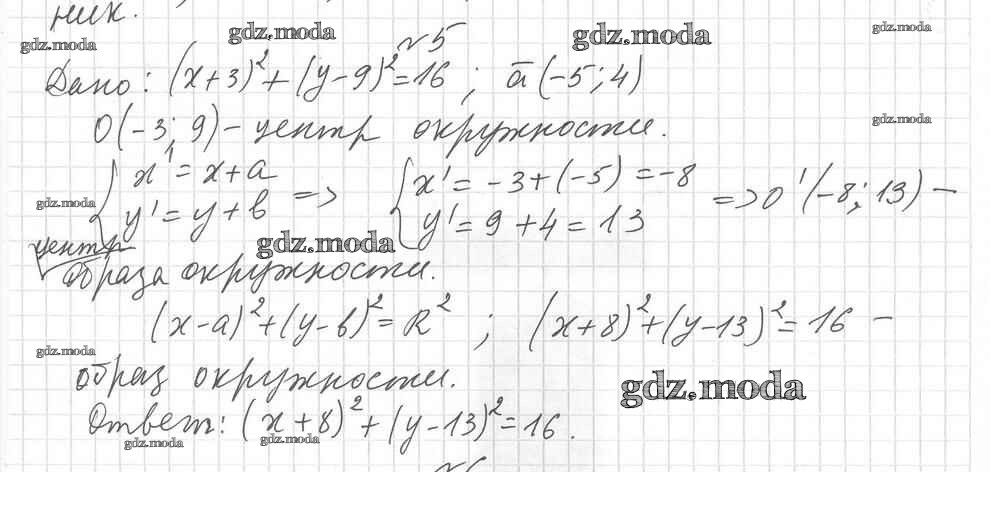 ник.
№5
Дано: (x+3)²+(y-9)²=16; ā(-5;4)
O(-3; 9) – центр окружности.
{ x' = x+a => { x' = -3+(-5) = -8 => O'(-8; 13) –
y' = y+b y' = 9+4 = 13
центр
образа окружности.
(x-a)²+(y-b)²=R² ; (x+8)²+(y-13)²=16 –
образ окружности.
Ответ: (x+8)²+(y-13)²=16.
gdz.moda
gdz.moda
gdz.moda
gdz.moda
gdz.moda
gdz.moda
gdz.moda
gdz.moda
gdz.moda
gdz.moda
gdz.moda